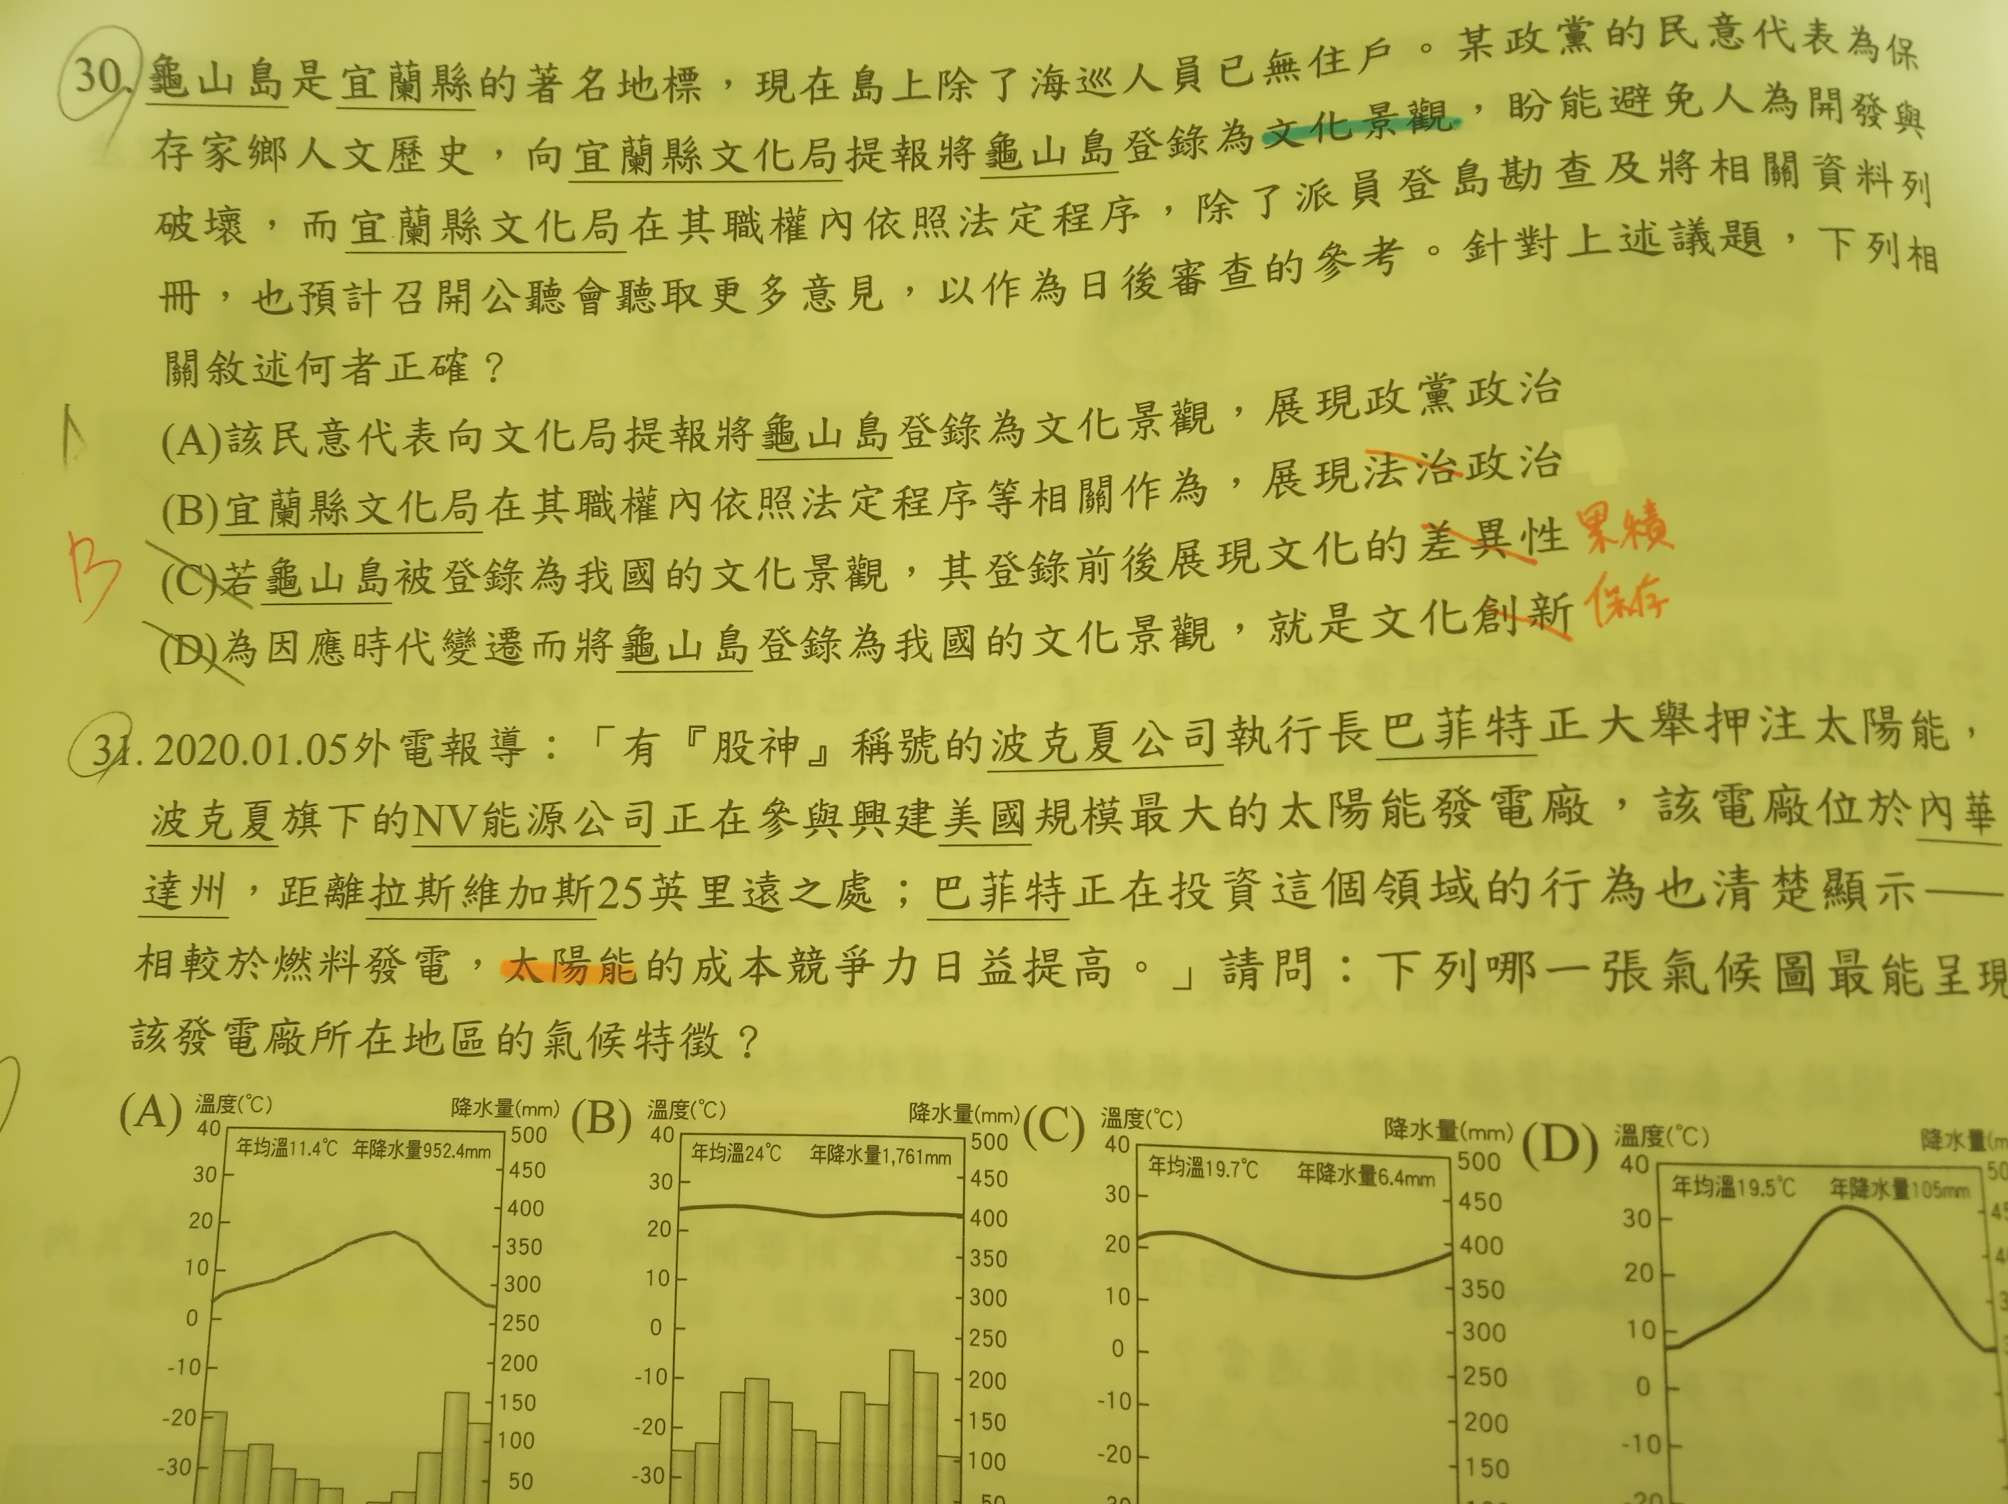 30. 龜山島是宜蘭縣的著名地標，現在島上除了海巡人員已無住戶。某政黨的民意代表為保
存家鄉人文歷史，向宜蘭縣文化局提報將龜山島登錄為文化景觀，盼能避免人為開發與
破壞，而宜蘭縣文化局在其職權內依照法定程序，除了派員登島勘查及將相關資料列
冊，也預計召開公聽會聽取更多意見，以作為日後審查的參考。針對上述議題，下列相
關敘述何者正確？
A
(A)該民意代表向文化局提報將龜山島登錄為文化景觀，展現政黨政治
(B)宜蘭縣文化局在其職權內依照法定程序等相關作為，展現法治政治
B
(C)若龜山島被登錄為我國的文化景觀，其登錄前後展現文化的差異性 累積
(D)為因應時代變遷而將龜山島登錄為我國的文化景觀，就是文化創新 保存
31. 2020.01.05外電報導：「有『股神』稱號的波克夏公司執行長巴菲特正大舉押注太陽能，
波克夏旗下的NV能源公司正在參與興建美國規模最大的太陽能發電廠，該電廠位於內華
達州，距離拉斯維加斯25英里遠之處；巴菲特正在投資這個領域的行為也清楚顯示——
相較於燃料發電，太陽能的成本競爭力日益提高。」請問：下列哪一張氣候圖最能呈現
該發電廠所在地區的氣候特徵？
(A) 溫度(℃) 降水量(mm)
年均溫11.4℃ 年降水量952.4mm
40
30
20
10
0
-10
-20
-30
500
450
400
350
300
250
200
150
100
50
(B) 溫度(℃) 降水量(mm)
年均溫24℃ 年降水量1,761mm
40
30
20
10
0
-10
-20
-30
500
450
400
350
300
250
200
150
100
50
(C) 溫度(℃) 降水量(mm)
年均溫19.7℃ 年降水量6.4mm
40
30
20
10
0
-10
-20
500
450
400
350
300
250
200
150
(D) 溫度(℃) 降水量(m
年均溫19.5℃ 年降水量105mm
40
30
20
10
0
-10
-20